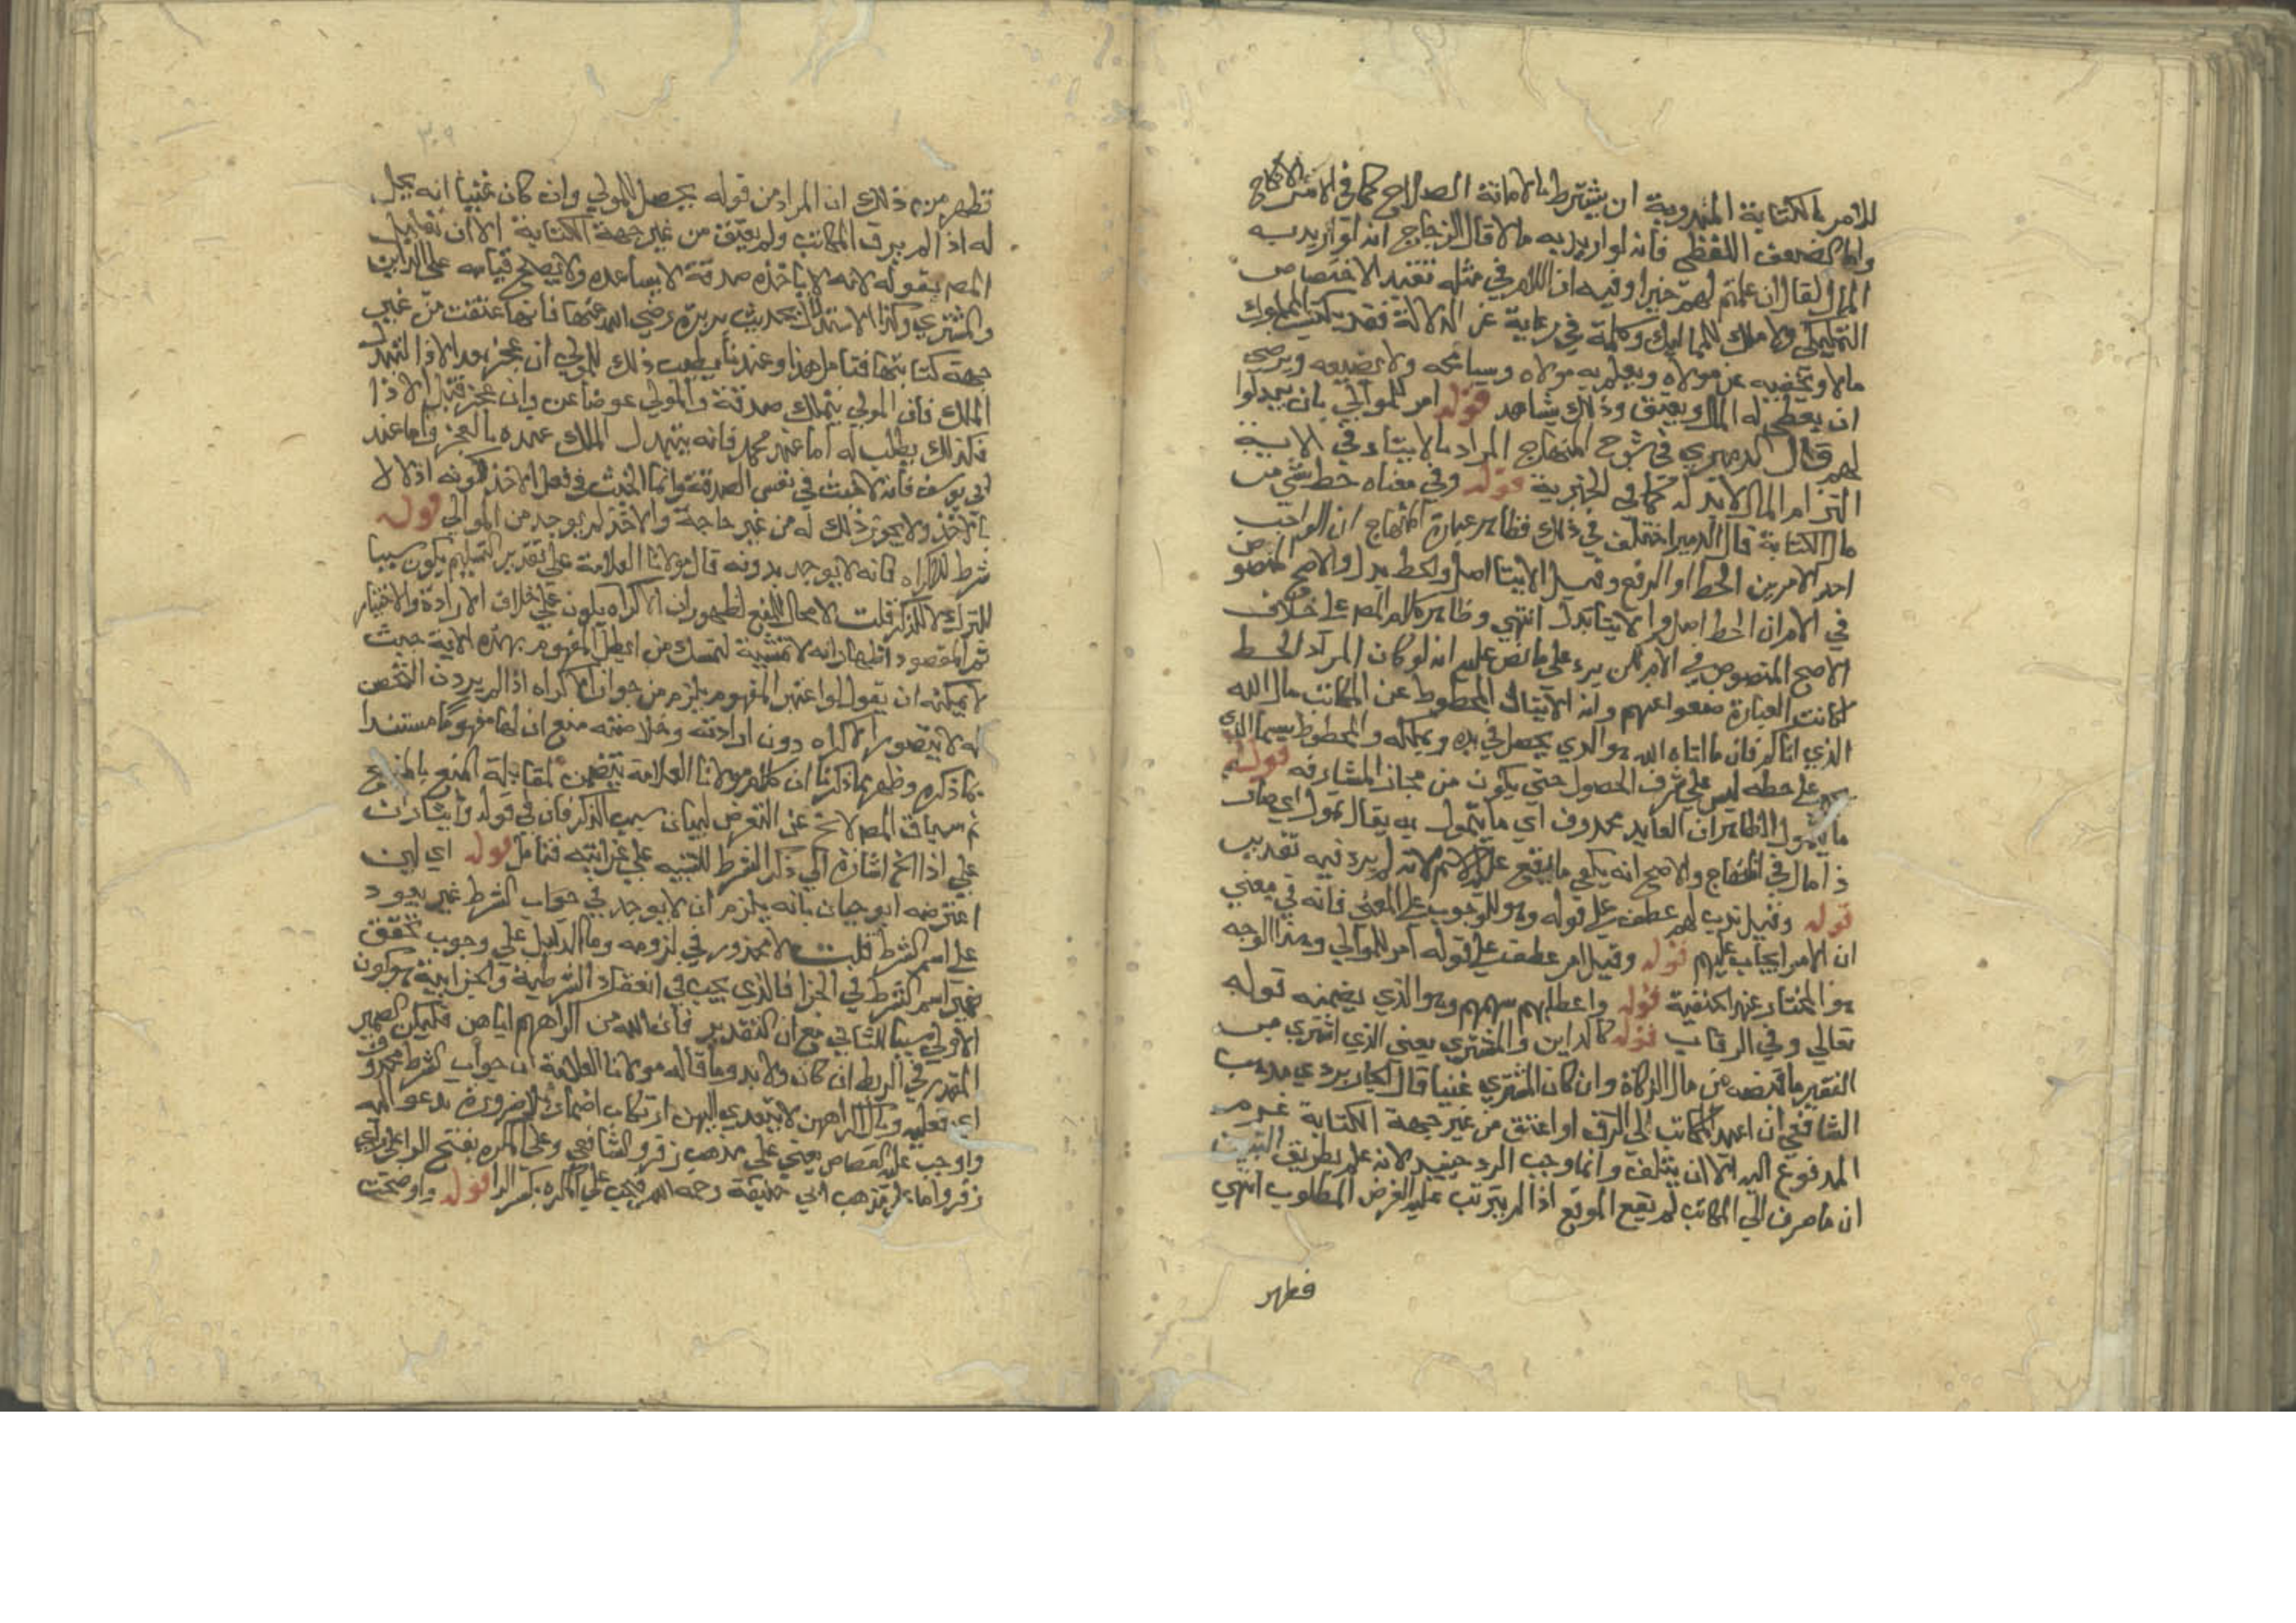 للامر بالكتابة المندوبة ان يشترط بالامانة الصلاح كما في الامر بالانكاح
واما لضعف اللفظي فانه لو اريد به مالا قال الزجاج انه لو اريد به
المال لقال ان علمتم لهم خيرا وفيه ان اللام في مثله تفيد الاختصاص
التمليكي ولا ملك للمماليك وكلمة في رعاية عن الدلالة فقد يكتسب المملوك
مالا ويخفيه عن مولاه ويعلم به مولاه ويسامحه ولا يضيعه ويرضى
ان يعطي له المال ويعتق وذلك يشاهد قوله امر للموالي بان يبذلوا
لهم قال الدميري في شرح المنهاج المراد بالايتاء في الاية
التزام المال لابد له كما في الجزية قوله وفي معناه حط شيء من
مال الكتابة قال الدميري اختلف في ذلك فظاهر عبارة المنهاج ان الواجب
احد الامرين الحط او الدفع وقيل الايتا اصل والحط بدل والاصح المنصوص
في الام ان الحط اصل والايتا بدل انتهي وظاهر كلام المص على خلاف
الاصح المنصوص في الام لكن يرد على ما نص عليه انه لو كان المراد الحط
لكانت العبارة ضعوا عنهم وان الايتا المحطوط عن المكاتب مال الله
الذي اتاكم فان ما اتاه الله هو الذي يحصل في يده ويملكه والمحطوط سيما الذي
على حطه ليس على شرف الحصول حتي يكون من مجاز المشارفة قوله
ما يتمول الظاهر ان العايد محذوف اي ما يتمول به يقال تمول اي صار
ذا مال في المنهاج والاصح انه يكفي ما يقع عليه الاسم لانه لم يرد فيه تقدير
قوله وقيل ندب لهم عطف على قوله وهو للوجوب على المعنى فانه في معني
ان الامر ايجاب عليهم قوله وقيل امر عطف على قوله امر للموالي وهذا الوجه
هو المختار عند الحنفية قوله واعطايهم سهمهم وهو الذي يضمنه قوله
تعالي وفي الرقاب قوله كالداين والمشتري يعني الذي اشتري من
الفقير ما قبضه من مال الزكاة وان كان المشتري غنيا قال الجاربردي مذهب
الشافعي ان اعيد المكاتب الي الرق او اعتق من غير جهة الكتابة غرم
المدفوع اليه الا ان يتلف وانما وجب الرد حينيذ لانه علم بطريق التبين
ان ما صرف الي المكاتب لم يقع الموقع اذا لم يترتب عليه الغرض المطلوب انتهي
فظهر
٣٠٩
فظهر من ذلك ان المراد من قوله يحصل للمولي وان كان غنيا انه يحل
له اذا لم يرق المكاتب ولم يعتق من غير جهة الكتابة الا ان تعليل
المص بقوله لانه لا ياخذه صدقة لا يساعده ولا يصلح قياسه على الداين
والمشتري وكذا الاستدلال بحديث بريرة رضي الله عنها فانها عتقت من غير
جهة كتابتها فتامل هذا وعندنا يطيب ذلك للمولي ان عجز بعد الاداء لتبدل
الملك فان المولي يتملك صدقة والمولي عوضا عن وان عجز قبل الاداء
فكذلك يطلب له اما عند محمد فانه يتبدل الملك عنده بالعجز واما عند
ابي يوسف فانه لا خبث في نفس الصدقة وانما الخبث في فعل الاخذ لكونه اذلالا
بالاخذ ولا يجوز ذلك له من غير حاجة والاخذ لم يوجد من الموالي قوله
شرط للاكراه فانه لا يوجد بدونه قال مولانا العلامة على تقدير التسليم يكون سببا
للترك لا للذكر قلت لا مجال للمنع لظهور ان الاكراه يكون على خلاف الارادة والاختيار
ثم المقصود اظهار انه لا تمشية لتمسك من ابطل المفهوم بهذه الاية حيث
لا يمكنه ان يقول لو اعتبر المفهوم يلزم من جواز الاكراه اذا لم يردن التحصن
لانه لا يتصور الاكراه دون ارادته وخلاصته منع ان لها مفهوما مستندا
بما ذكره وظهر بما ذكرنا ان كلام مولانا العلامة يتضمن لمقابلة المنع بالمنع
ثم سياق المص لا يخ عن التعرض لبيان سبب الذكر فان في قوله وايثار ان
على اذا الخ اشارة الي ذكر الشرط للتنبيه على غرابته فتامل قوله اي لهن
اعترضه ابو حيان بانه يلزم ان لا يوجد في جواب الشرط ضمير يعود
على اسم الشرط قلت لا محذور في لزومه وما الدليل علي وجوب تحقق
ضمير اسم الشرط في الجزا فالذي يجب في انعقاد الشرطية والجزايية هو كون
الاولي سببا للثاني مع ان التقدير فان الله من اكراههم اياهن فليكن الضمير
المقدر في الربط ان كان ولابد وما قاله مولانا العلامة ان جواب الشرط محذوف
اي فعليه وبال اكراههن لا يتعدي اليهن ارتكاب اضمار بلا ضرورة تدعو اليه
واوجب عليه القصاص يعني على مذهب زفر والشافعي وعلى المكره بفتح الرا على راي
زفر واما على مذهب ابي حنيفة رحمه الله فيجب علي المكره بكسر الرا قوله واوضحت